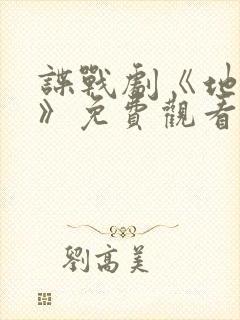 諜戰劇《地
》免費觀看
劉高美